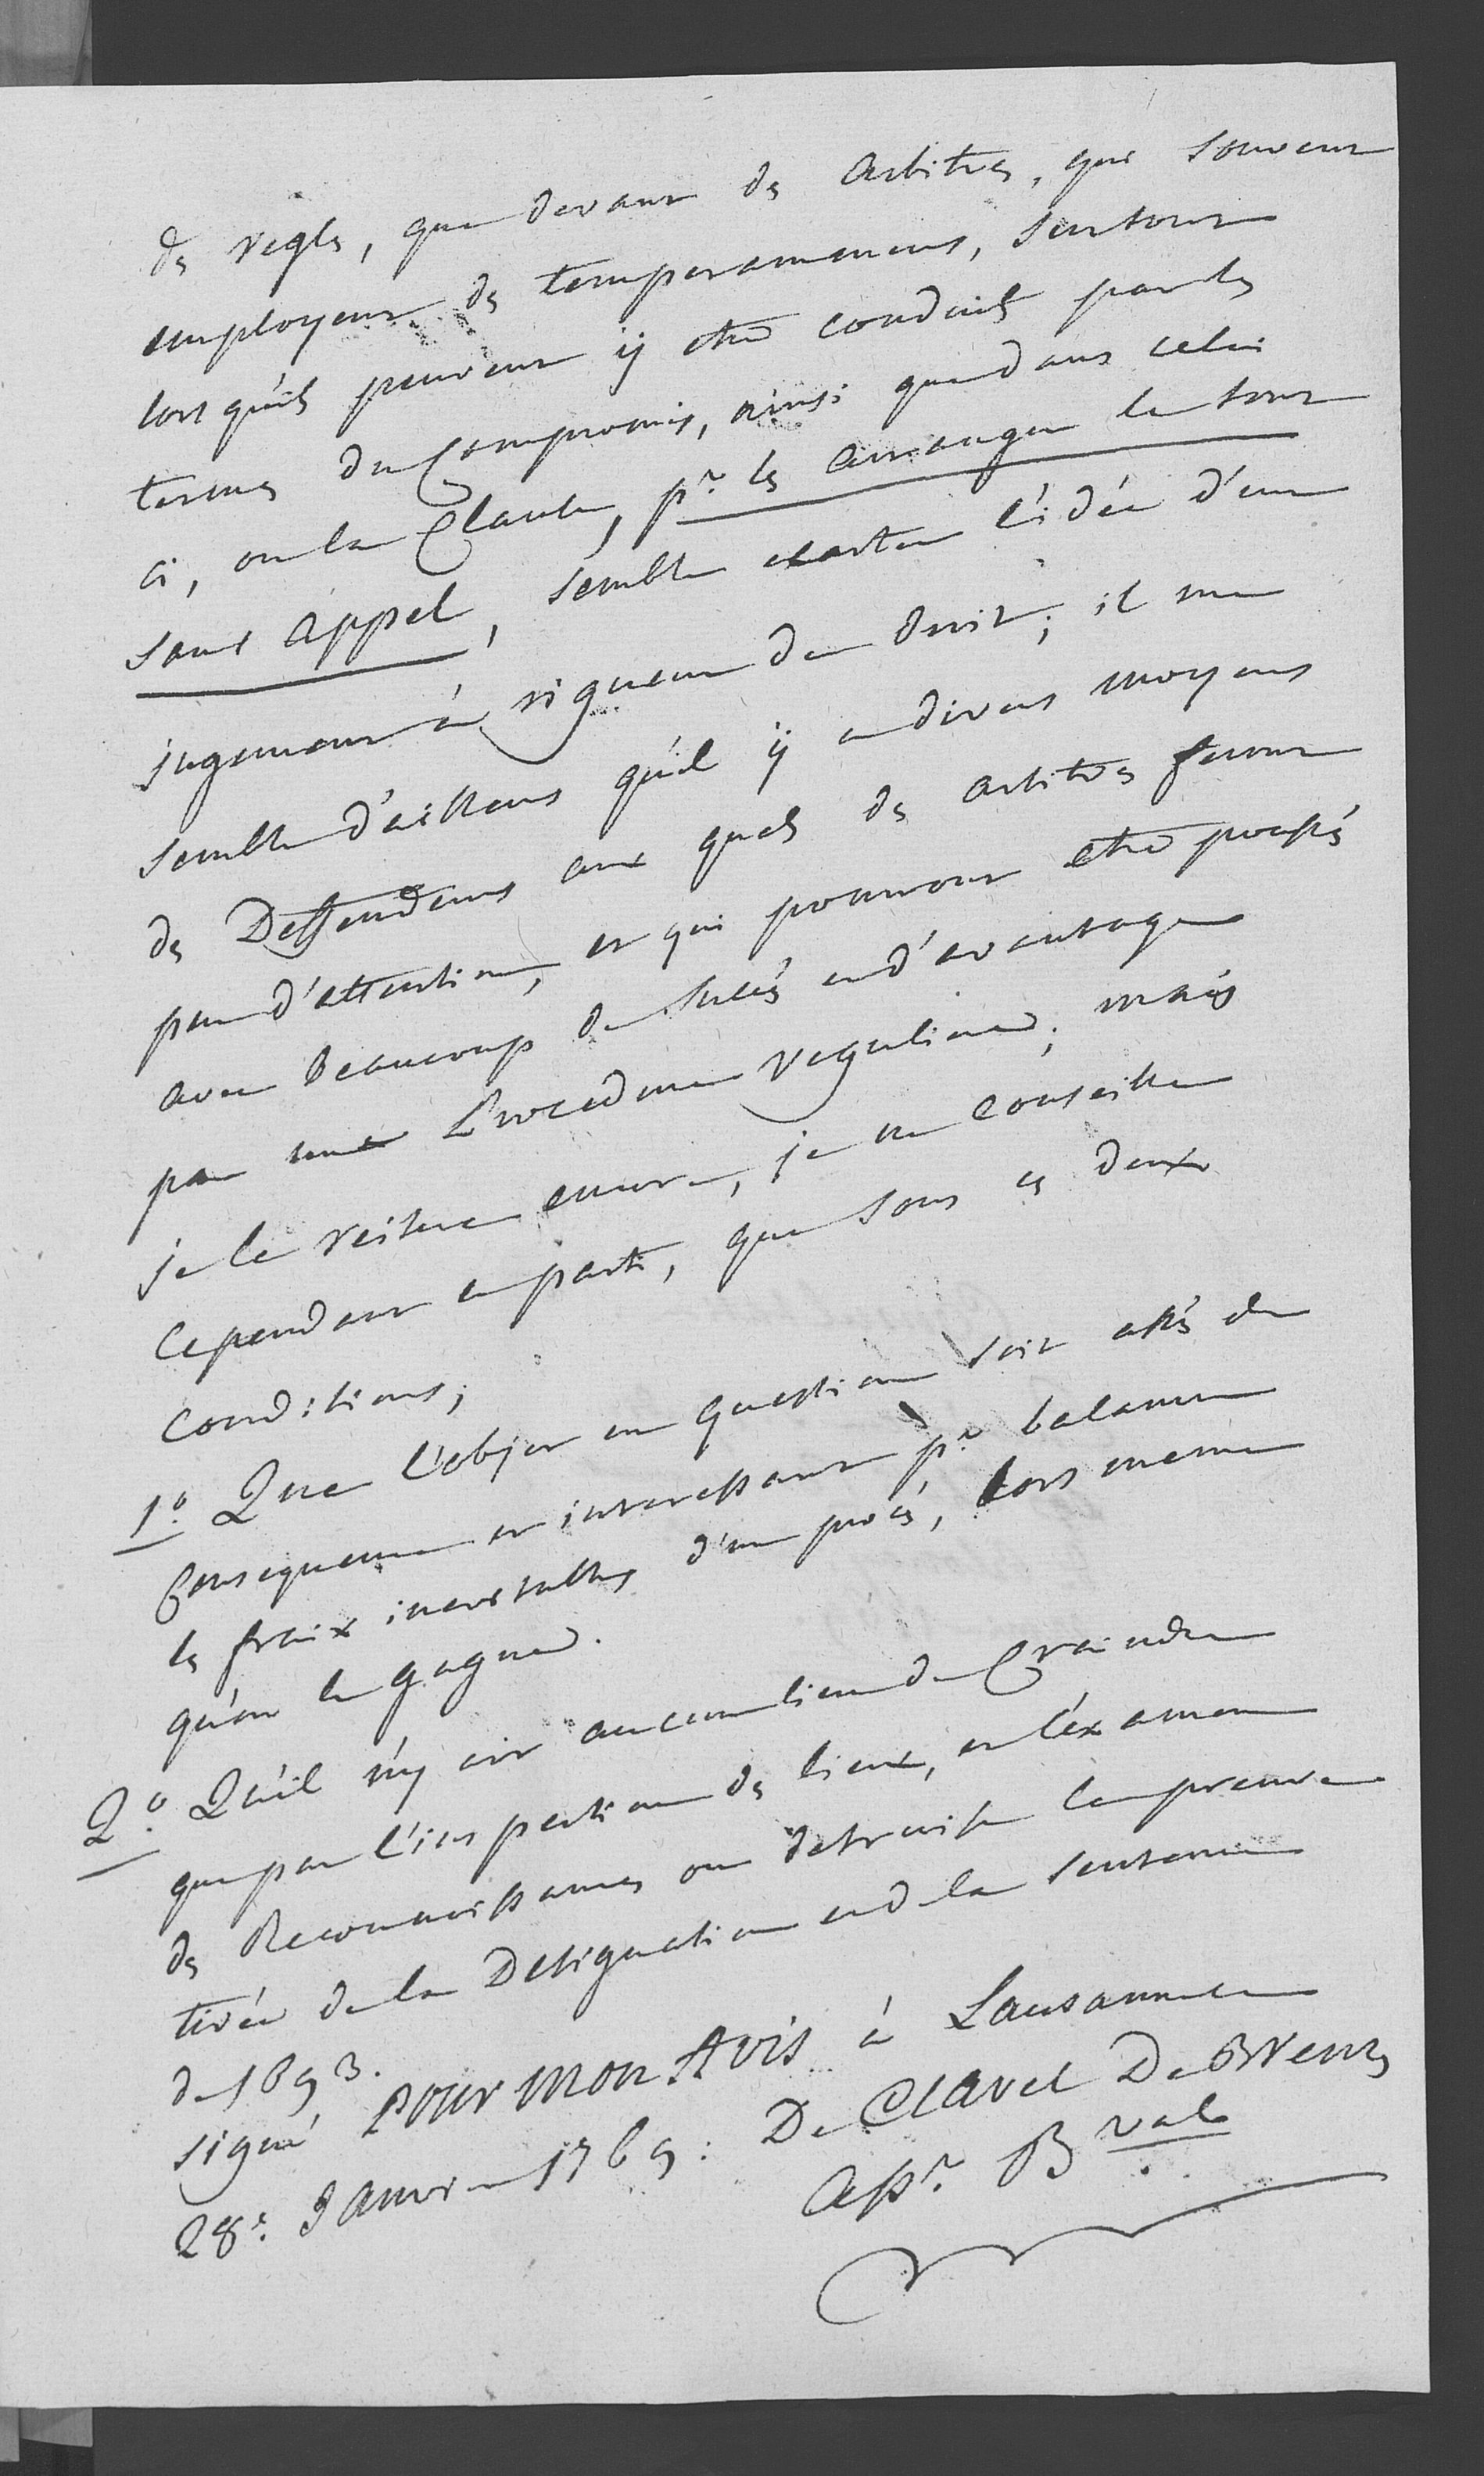 des regles, que devant des Arbitres, qui souvent
employent des temperammens, surtout
lors qu'ils peuvent ÿ etre conduits par les
termes du Compromis, ainsi que dans celui
ci, ou la Clause, pr. les Arranger le tout
sans Appel, semble ecarter l'idée d'un
jugement à rigueur de droit; il me
semble d'ailleurs qu'il ÿ a divers moyens
des Deffendeurs aux quels des arbitres feront
peu d'attention, et qui pourront etre poussés
avec beaucoup de succés et d'avantage
par une Procedure reguliere; mais
je le reitere encore, je ne conseille
Cependant ce parti, que sous ces deux
Conditions;
1o. Que l'objet en question soit assés de
Consequence et interessant pr. balancer
les fraix inevitables d'un procés, lors meme
qu'on le gagne.
2o. Qu'il n'y ait aucun lieu de Craindre
que par l'inspection des lieux, et l'examen
des Reconnoissances on detruise la preuve
tirée de la Designation et de la sentence
de 1693.
signé Pour mon Avis à Lausanne ce
28e. Janvier 1769: De Clavel De Brenles
Assr. Bval